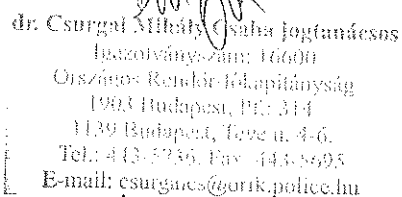 dr. Csurgai Mihály Csaba jogtanácsos
Igazolványszám: 16600
Országos Rendőr-főkapitányság
1903 Budapest, Pf.: 314
1139 Budapest, Teve u. 4-6.
Tel.: 443-5736, Fax: 443-5695
E-mail: csurgaics@orfk.police.hu